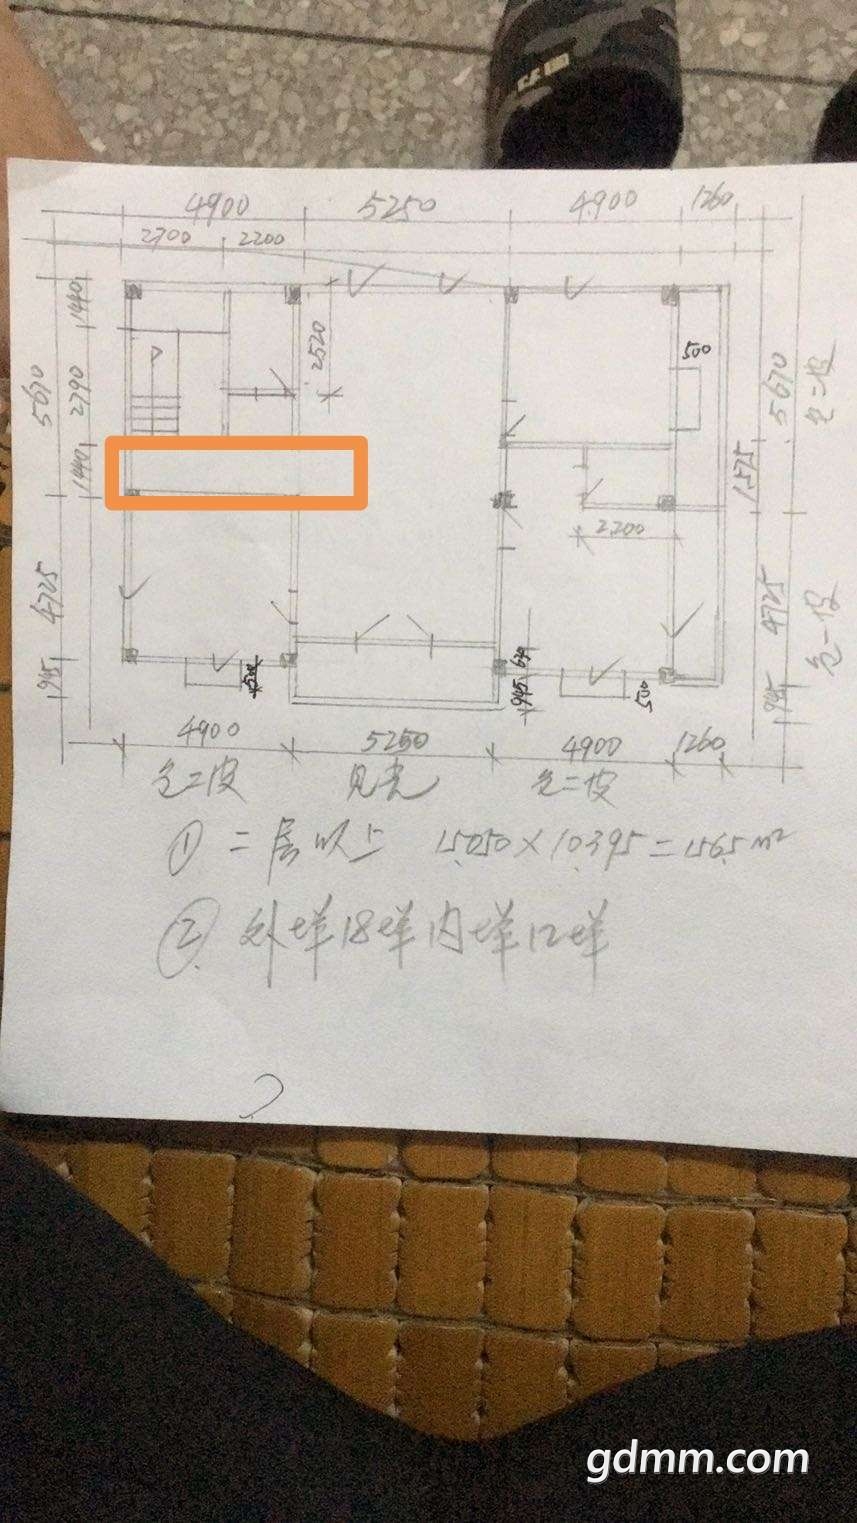 4900 5250 4900 1260
2700 2200
1440
2790
5670
1440
2520
500
5670
1575
2200
4725
945
500
945
500
4725
945
4900 5250 4900 1260
① 二层以上 15.050×10.395=156.5m²
② 外墙18墙内墙12墙
gdmm.com